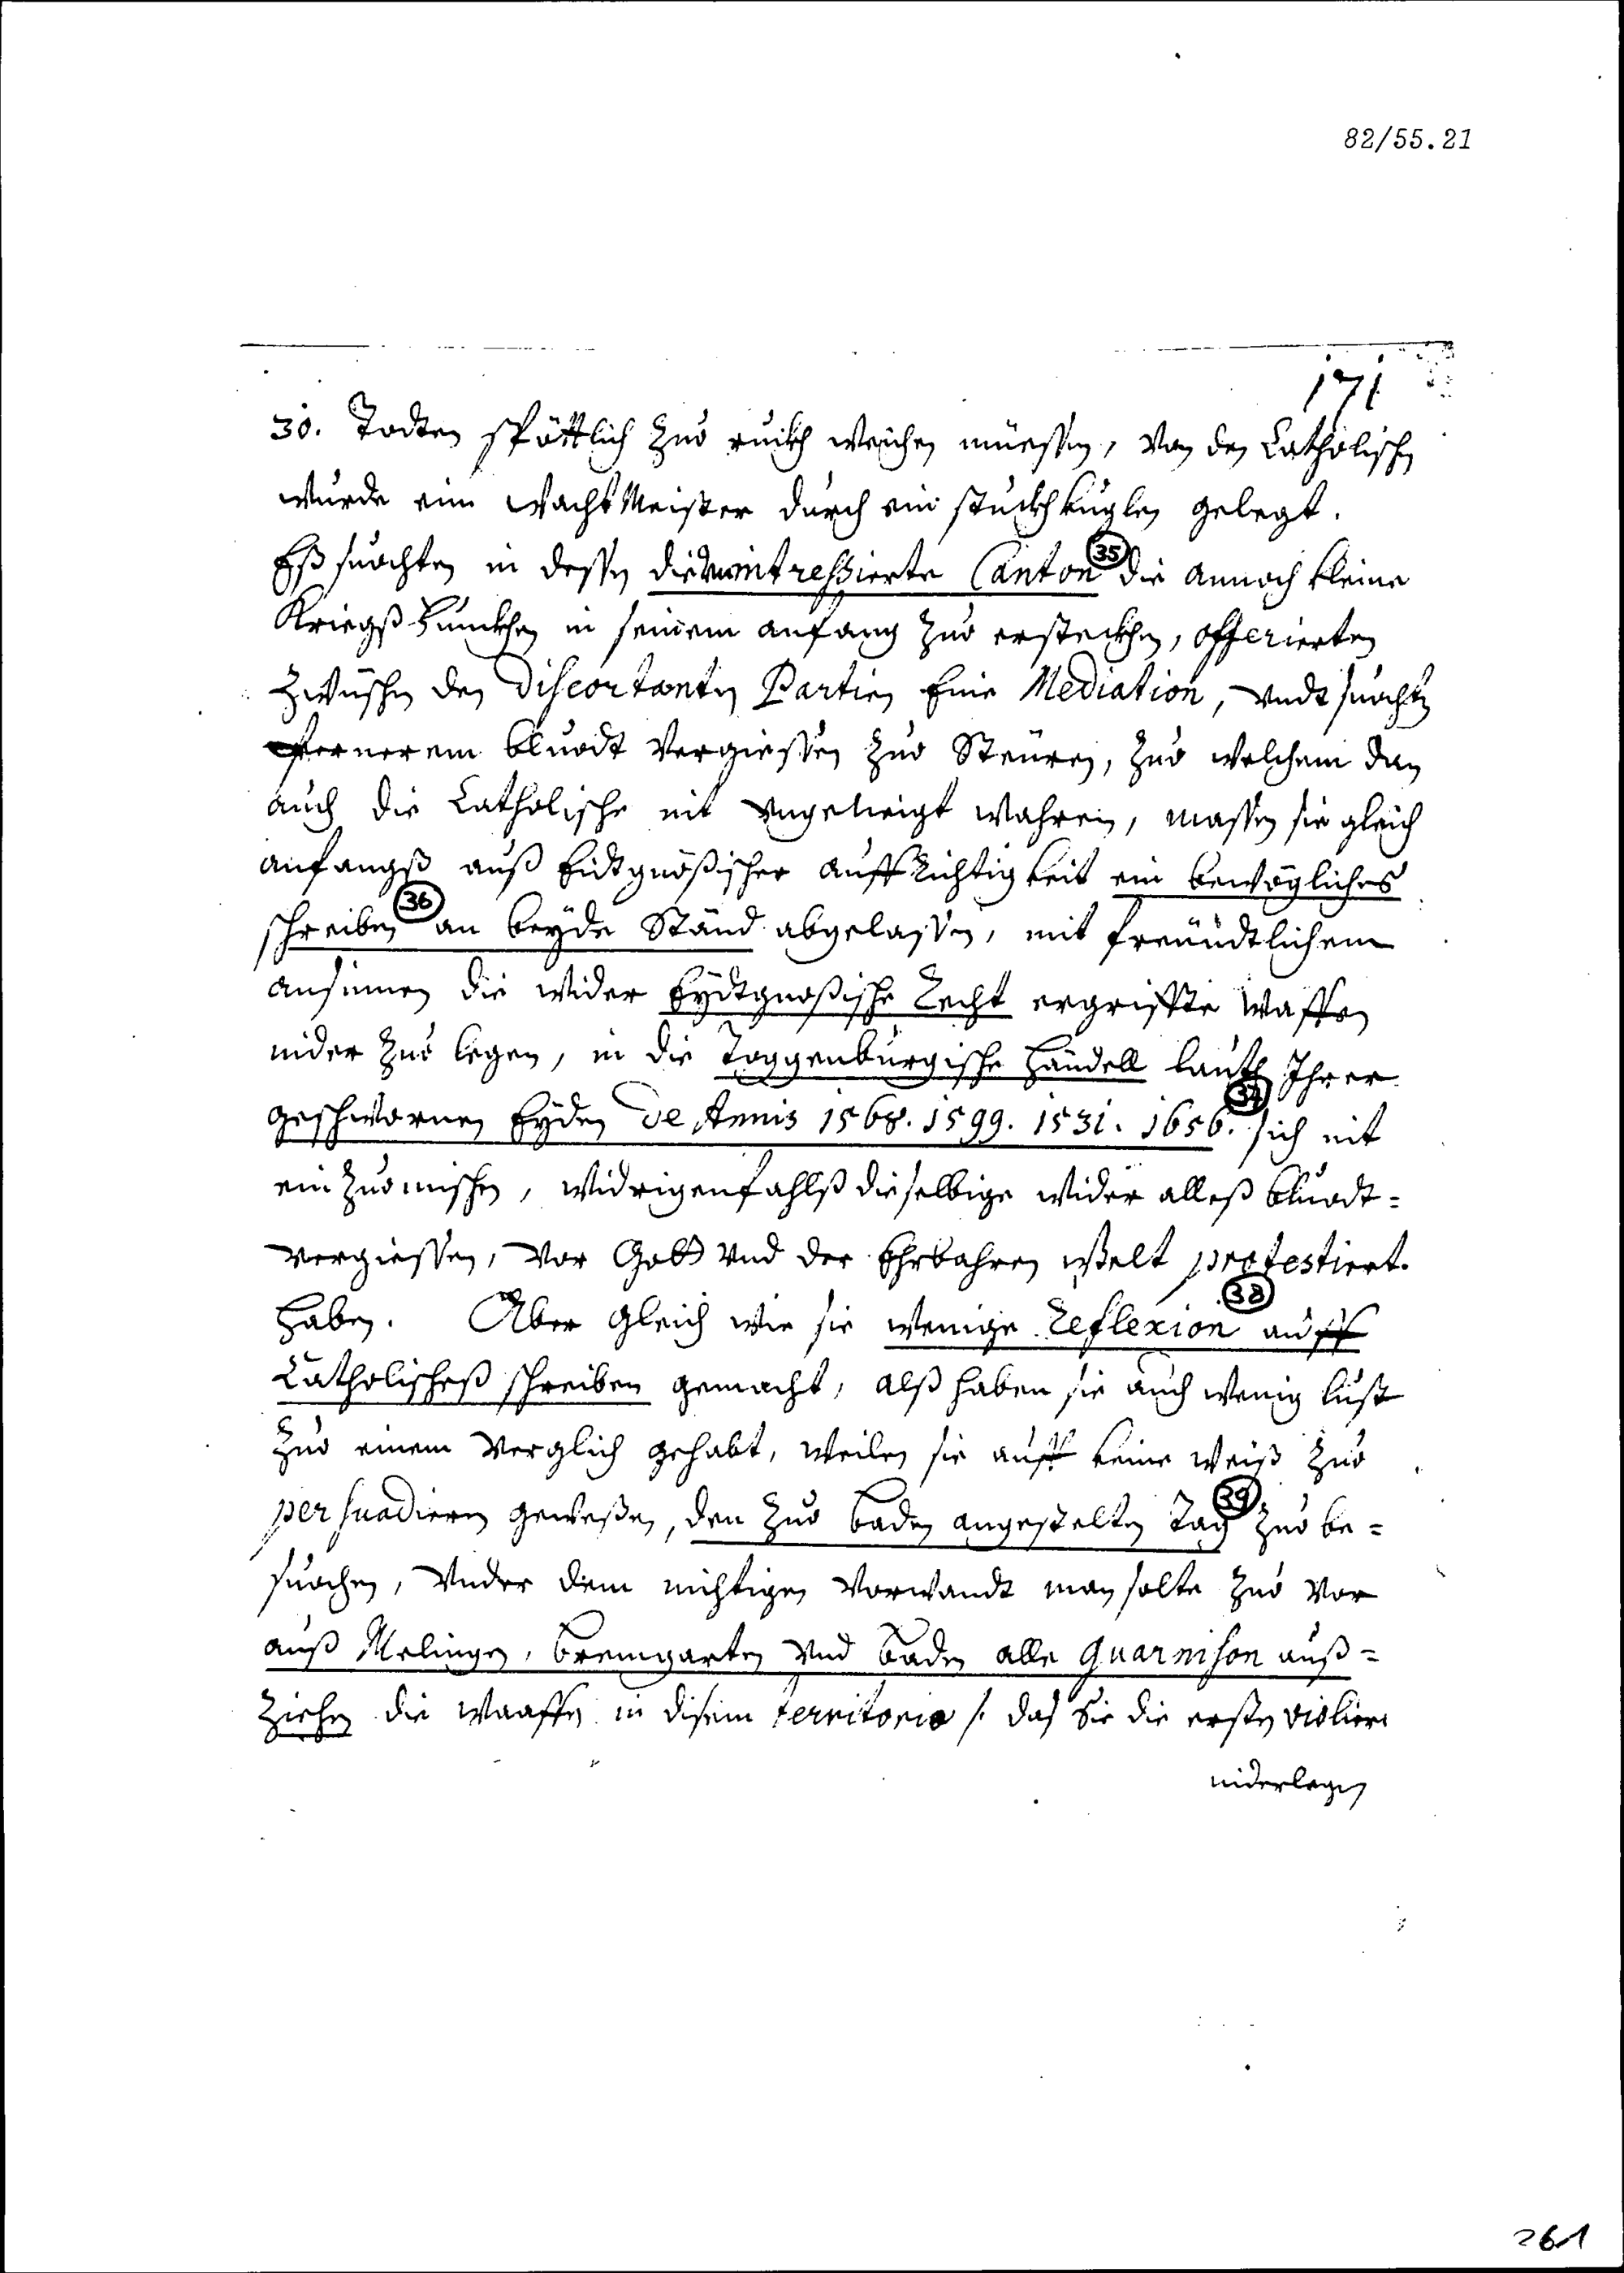 82/55.21
171
30. Todten spöttlich zuo ruckh weichen müessen, Von den Catholischen
wurde ein WachtMeister durch ein stuckhkuglen gelegt.
Eß suochten in dessen die unintressierte Canton (35) die annoch kleine
Kriegß funckhen in seinem anfang zuo ersteckhen, offerierten
Zwüschen den Discortanten Partien Eine Mediation, undt suochten
fernerem bluodt Vergiessen zuo Steüren, zuo welchem dan
auch die Catholische nit ungeneigt wahren, massen sie gleich
anfangß auß Eidtgnößischer auffRichtigkeit ein bewögliches
schreiben (36) an beyde Ständ abgelassen, mit freündtlichem
ansinnen die wider Eydtgnoßische Recht ergriffte Waffen
nider zuo legen, in die Toggenburgische Händell lauth Ihrer
geschwornen Eyden de Annis 1568. 1599. 1531. 1656. (37) sich nit
ein zuomischen, widrigenfahlß dieselbige wider alleß bluodt=
vergiessen, vor Gott und der Ehrbahren welt protestiert.
haben. Aber gleich wie sie wenige Reflexion (38) auff
Catholischeß schreiben gemacht, alß haben sie auch wenig lust
zuo einem Verglich gehabt, weilen sie auff keine weiß zuo
persuadiern geweßen, den zuo baden angestelten Tag (39) zuo be=
suochen, under dem nichtigen Vorwandt man solte zuo Vor
auß Melingen, bremgarten und baden alle Guarnison auß=
ziehen die Waaffen in disem territorio /. das Sie die ersten violiere
niderlegen
261